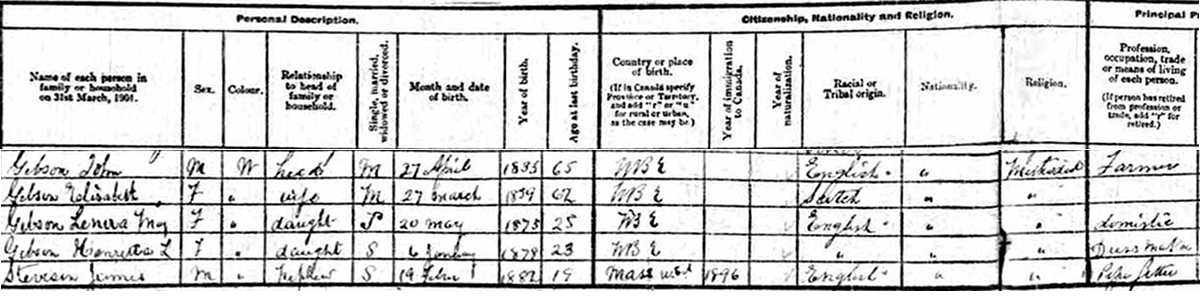 Personal Description. Citizenship, Nationality and Religion. Principal P
Name of each person in family or household on 31st March, 1901. Sex. Colour. Relationship to head of family or household. Single, married, widowed or divorced. Month and date of birth. Year of birth. Age at last birthday. Country or place of birth. (If in Canada specify Province or Territory, and add "r" or "u" for rural or urban, as the case may be.) Year of immigration to Canada. Year of naturalization. Racial or Tribal origin. Nationality. Religion. Profession, occupation, trade or means of living of each person. (If person has retired from profession or trade, add "r" for retired.)
Gibson John M W head M 27 April 1835 65 NB E English " Methodist Farmer
Gibson Elisabeth F " wife M 27 march 1839 62 NB E Scotch " "
Gibson Lenera May F " daught S 20 may 1875 25 NB E English " " domistic
Gibson Henrietta L F " daught S 6 1878 23 NB E " " " Dress Maker
James M " Nephew S 19 1882 19 Mass 1896 English " "